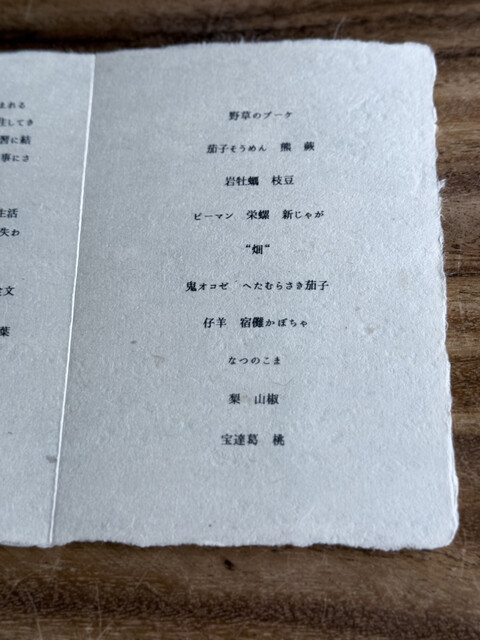 まれる
してき
習に結
事にさ
生活
失わ
文
葉
野草のブーケ
茄子そうめん 熊 蕨
岩牡蠣 枝豆
ピーマン 栄螺 新じゃが
“畑”
鬼オコゼ へたむらさき茄子
仔羊 宿儺かぼちゃ
なつのこま
梨 山椒
宝達葛 桃